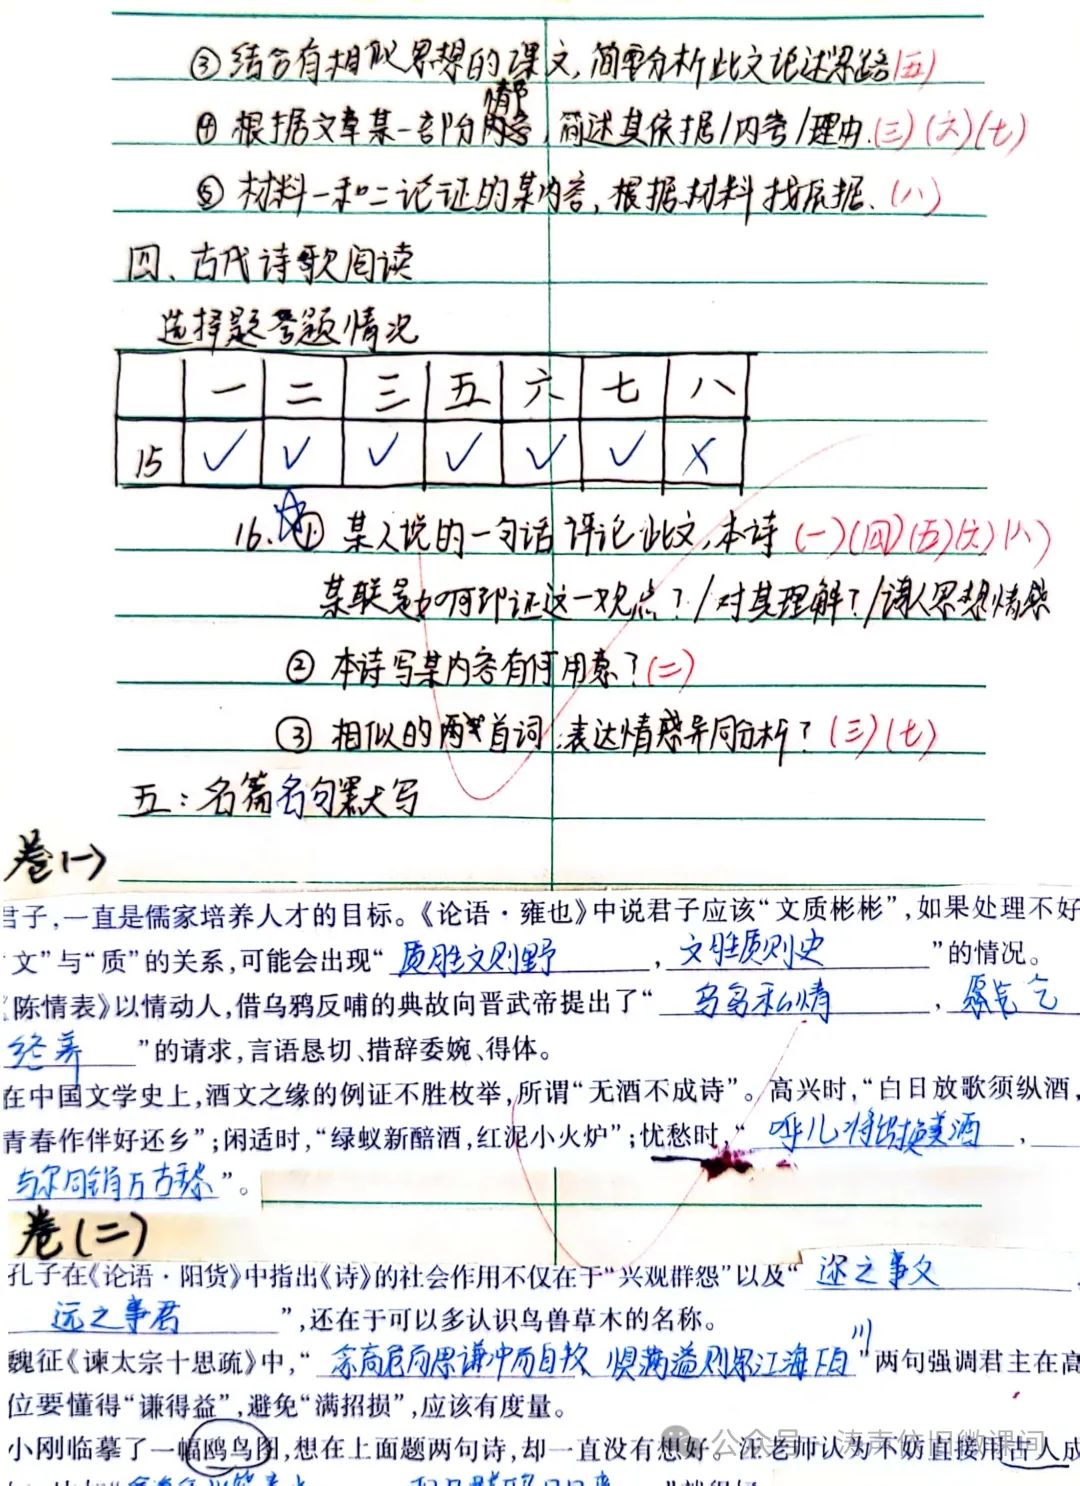 ③ 结合有相似思想的课文,简要分析此文论述思路(五)
情节
④ 根据文章某一部分内容,简述其依据/内容/理由.(三)(六)(七)
⑤ 材料一和二论证的某内容,根据材料找依据.(八)
四、古代诗歌阅读
选择题答题情况
一 二 三 五 六 七 八
15 ✓ ✓ ✓ ✓ ✓ ✓ ×
16. ① 某人说的一句话评论此文,本诗 (一)(四)(五)(六)(八)
某联是如何印证这一观点?/对其理解?/诗人思想情感
② 本诗写某内容有何用意?(二)
③ 相似的两首词,表达情感异同分析?(三)(七)
五:名篇名句默写
卷(一)
君子,一直是儒家培养人才的目标。《论语·雍也》中说君子应该“文质彬彬”,如果处理不好
“文”与“质”的关系,可能会出现“质胜文则野,文胜质则史”的情况。
《陈情表》以情动人,借乌鸦反哺的典故向晋武帝提出了“乌鸟私情,愿乞
终养”的请求,言语恳切、措辞委婉、得体。
在中国文学史上,酒文之缘的例证不胜枚举,所谓“无酒不成诗”。高兴时,“白日放歌须纵酒,
青春作伴好还乡”;闲适时,“绿蚁新醅酒,红泥小火炉”;忧愁时,“呼儿将出换美酒,
与尔同销万古愁”。
卷(二)
孔子在《论语·阳货》中指出《诗》的社会作用不仅在于“兴观群怨”以及“迩之事父,
远之事君”,还在于可以多认识鸟兽草木的名称。
川
魏征《谏太宗十思疏》中,“念高危而思谦冲而自牧 惧满溢则思江海下百”两句强调君主在高
位要懂得“谦得益”,避免“满招损”,应该有度量。
小刚临摹了一幅鸥鸟图,想在上面题两句诗,却一直没有想好。汪老师认为不妨直接用古人成
公众号·涛声依旧微课间